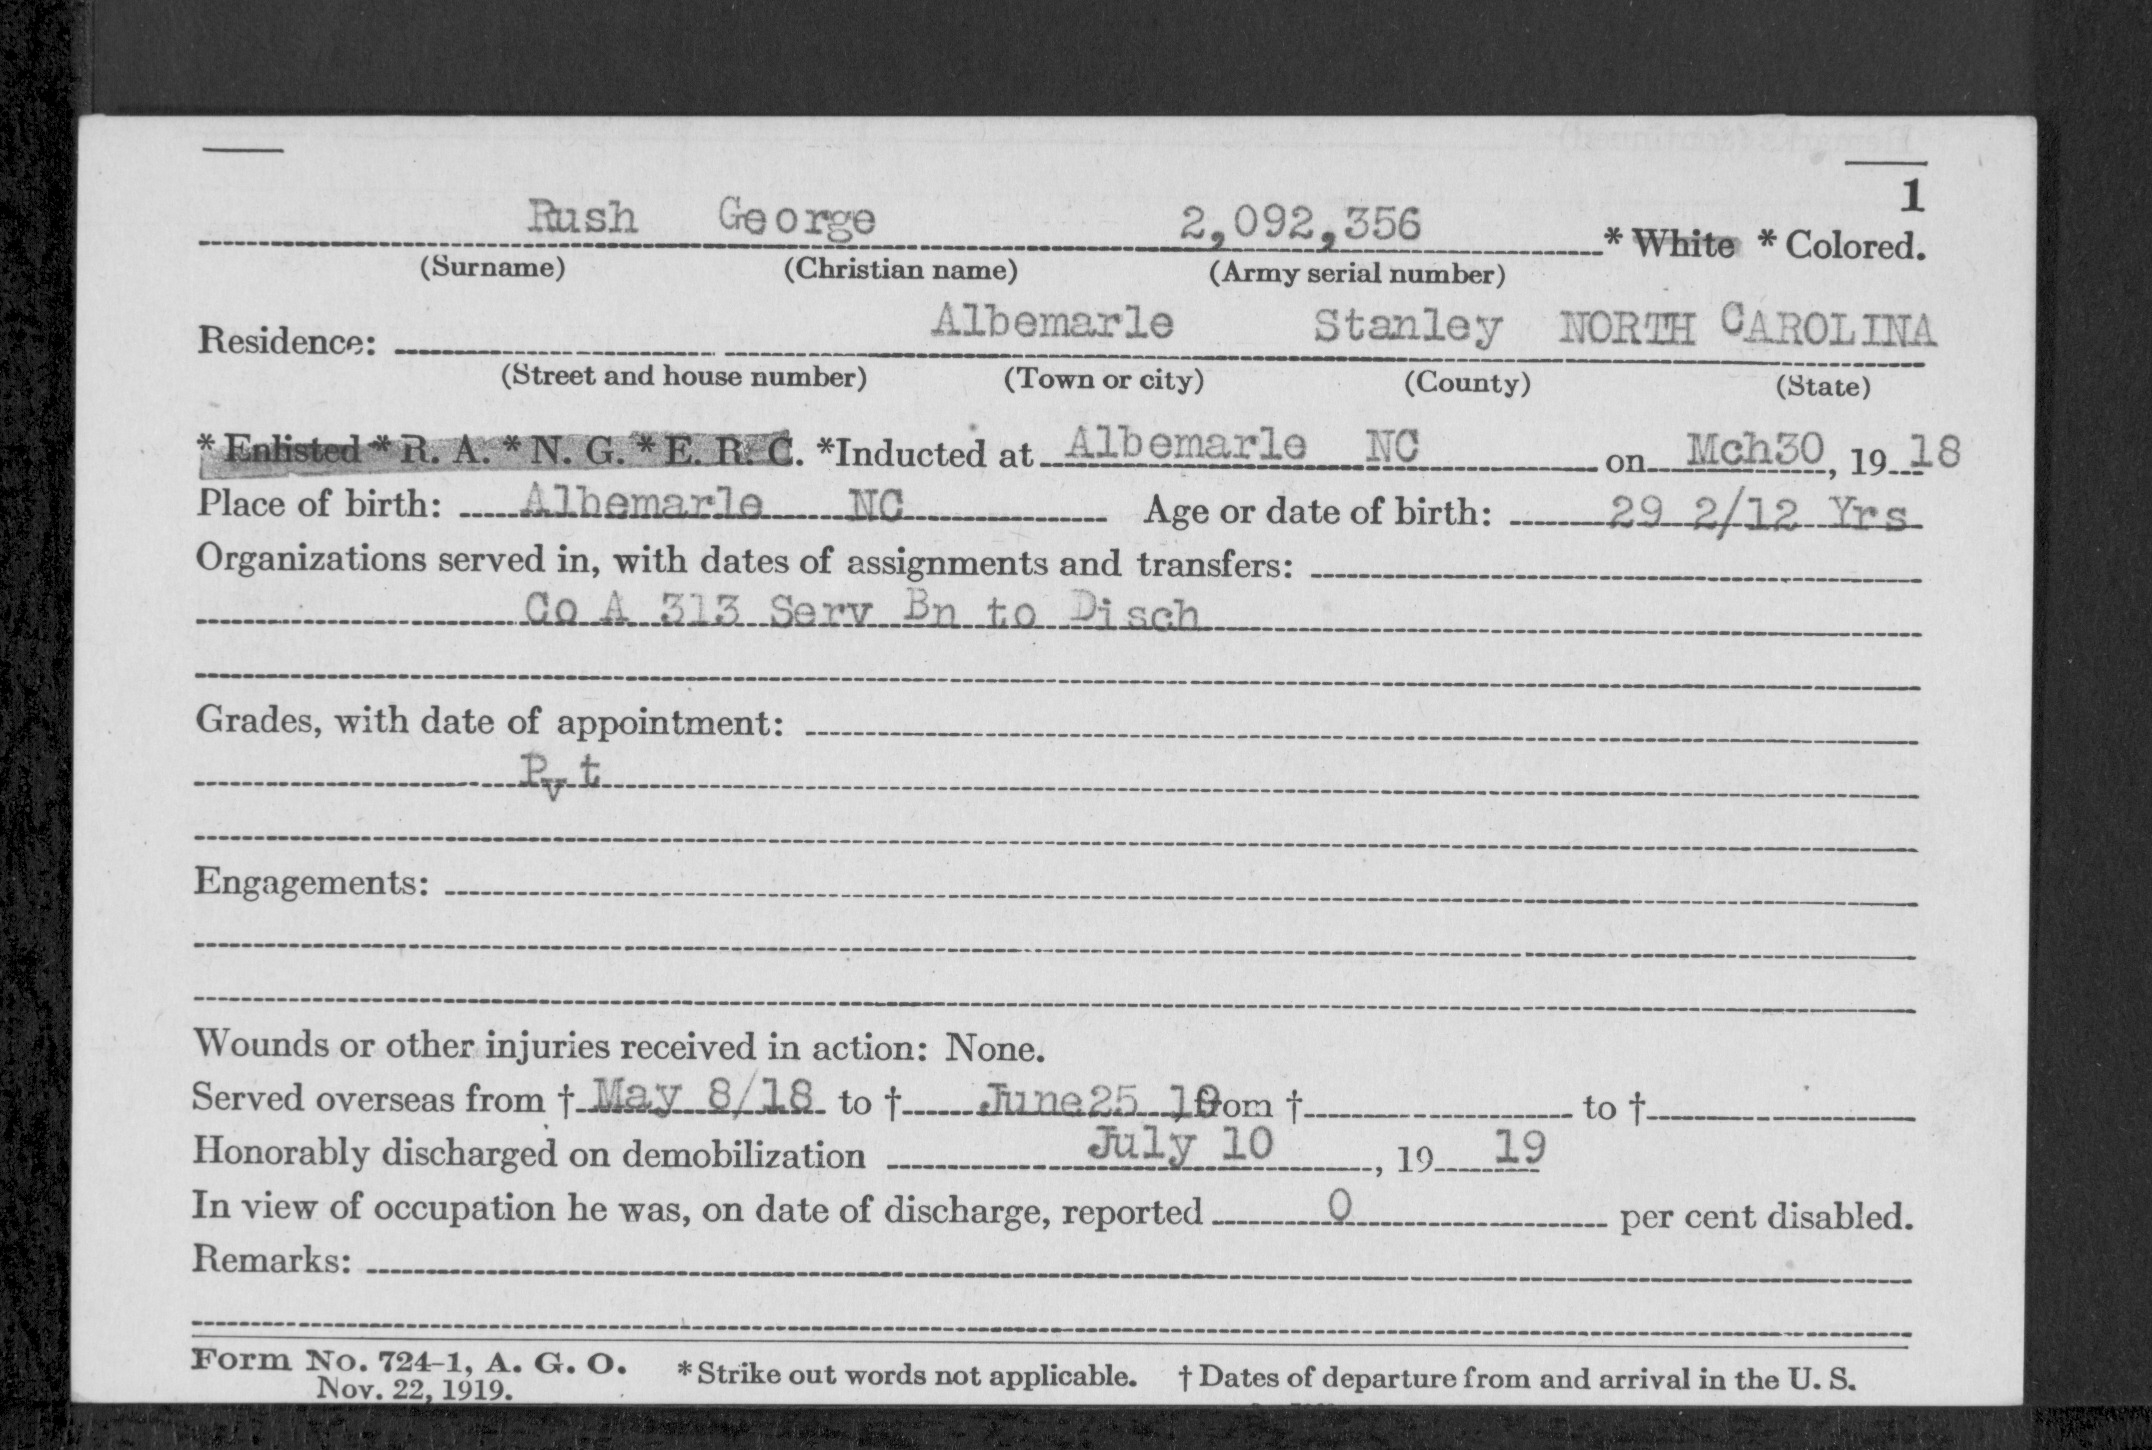 1
Rush George 2,092,356 * White * Colored.
(Surname) (Christian name) (Army serial number)
Residence: Albemarle Stanley NORTH CAROLINA
(Street and house number) (Town or city) (County) (State)
* Enlisted * R. A. * N. G. * E. R. C. *Inducted at Albemarle NC on Mch30, 19 18
Place of birth: Albemarle NC Age or date of birth: 29 2/12 Yrs
Organizations served in, with dates of assignments and transfers:
Co A 313 Serv Bn to Disch
Grades, with date of appointment:
Pvt
Engagements:
Wounds or other injuries received in action: None.
Served overseas from † May 8/18 to † June25 19 from † to †
Honorably discharged on demobilization July 10, 19 19
In view of occupation he was, on date of discharge, reported 0 per cent disabled.
Remarks:
Form No. 724-1, A. G. O. * Strike out words not applicable. † Dates of departure from and arrival in the U. S.
Nov. 22, 1919.